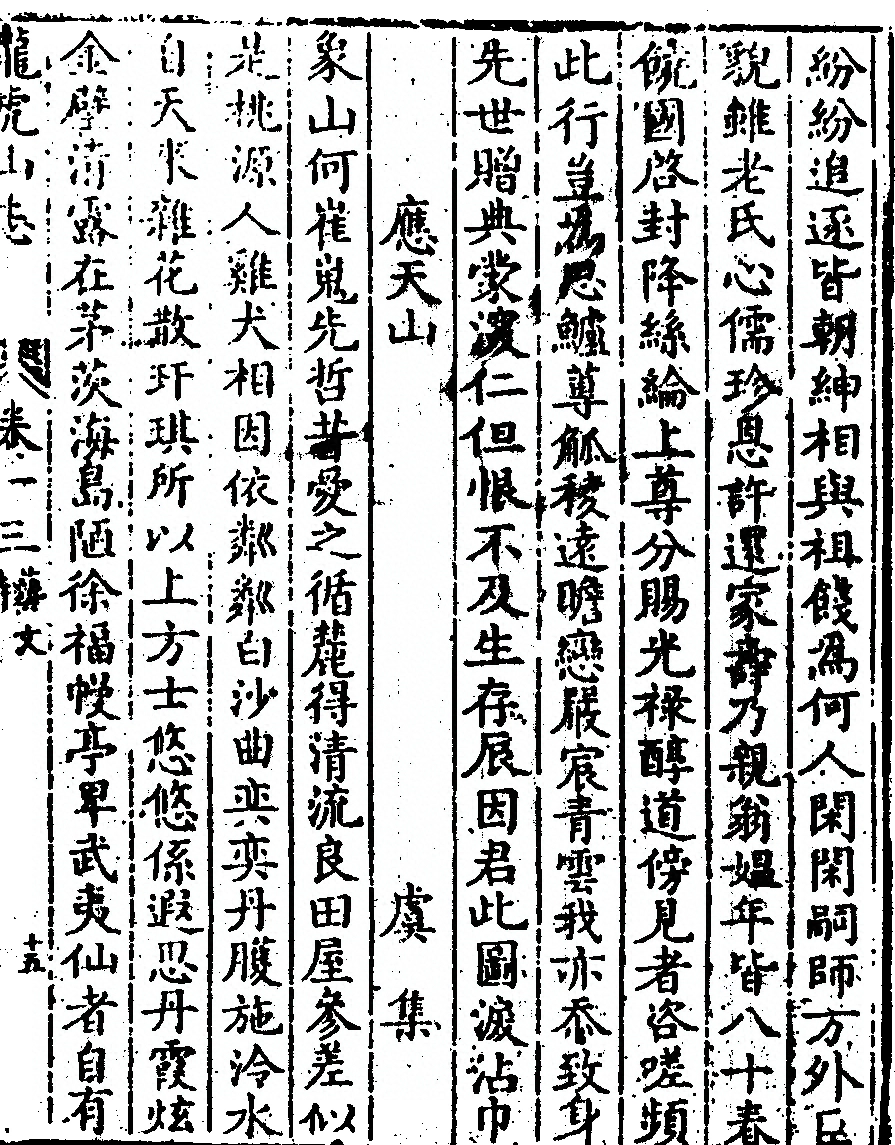 紛紛追逐皆朝紳相與祖餞為何人閑閑嗣師方外臣
貌雖老氏心儒珍恩許還家壽乃親翁媼年皆八十春
饒國啓封降絲綸上尊分賜光祿醇道傍見者咨嗟頻
此行豈為思鱸蓴觚稜遠瞻戀嚴宸青雲我亦忝致身
先世贈典蒙濃仁但恨不及生存辰因君此圖淚沾巾
應天山 虞集
象山何崔嵬先哲昔愛之循麓得清流良田屋參差似
是桃源人雞犬相因依粼粼白沙曲奕奕丹雘施泠水
自天來雜花散玕琪所以上方士悠悠係遐思丹霞炫
金擘清露在茅茨海島陋徐福幔亭卑武夷仙者自有
龍虎山志 卷十三 藝文 十五